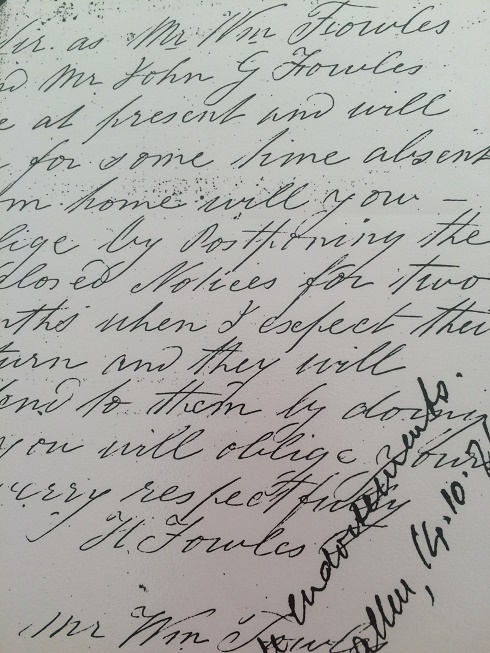 Sir. as Mr Wm Fowles
nd Mr John G Fowles
e at present and will
for some time absent
m home will you –
lige by Postponing the
closed Notices for two
nths when I expect their
turn and they will
tend to them by doing
you will oblige Yours
very respectfully
H. Fowles
Mr Wm Fowles
endorsements.
14.10.